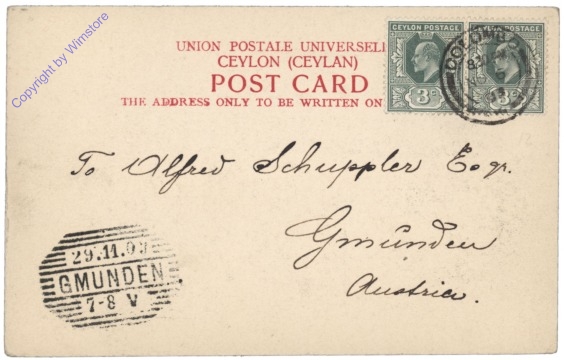 Copyright by Wimstore
UNION POSTALE UNIVERSELL
CEYLON (CEYLAN)
POST CARD
THE ADDRESS ONLY TO BE WRITTEN ON
CEYLON POSTAGE
3c
CEYLON POSTAGE
3c
To Alfred Schuppler Esqr.
Gmunden
Austria.
29.11.03
GMUNDEN
7-8 V